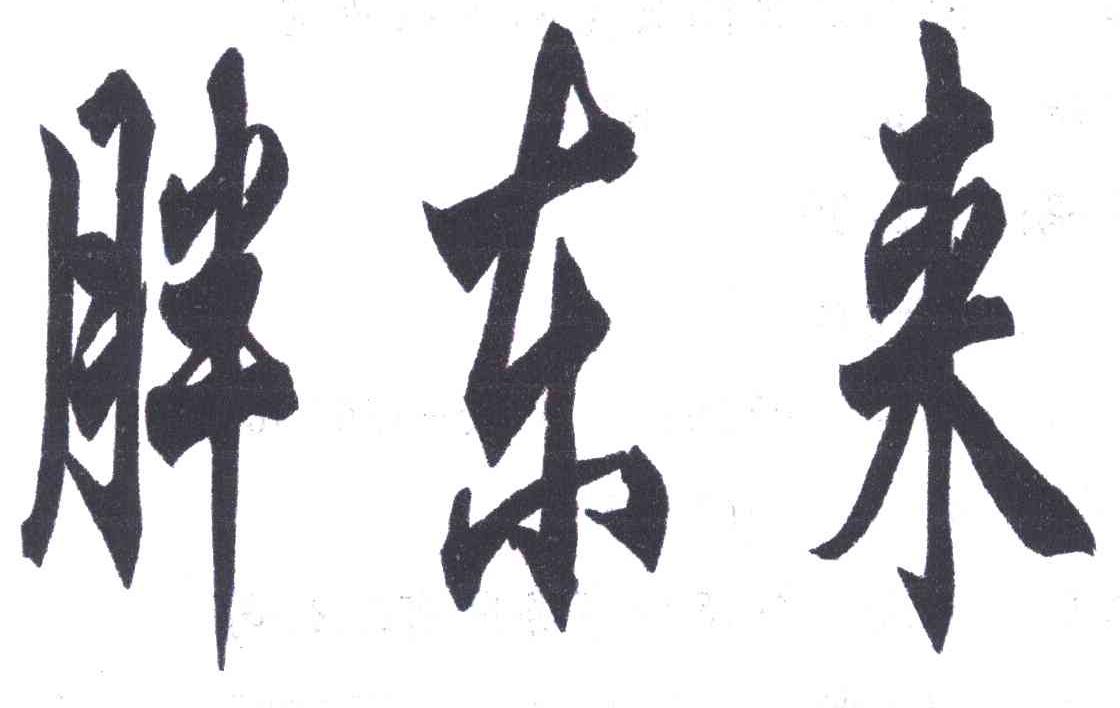 胖东来